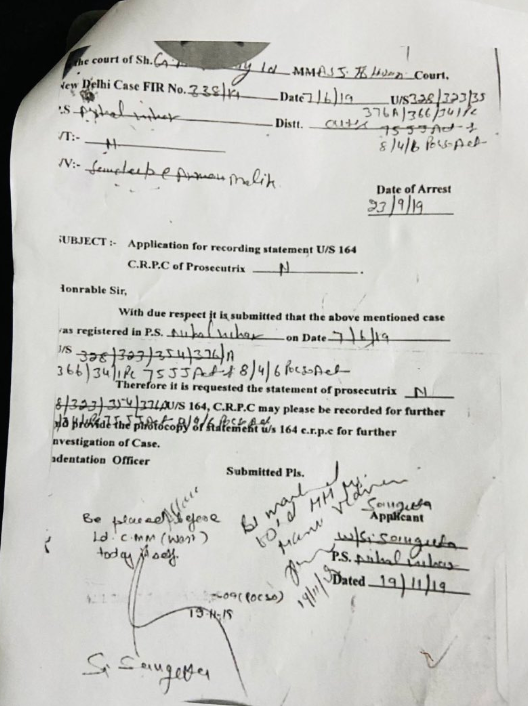 the court of Sh. Ld MM Court,
New Delhi Case FIR No. 338/19 Date 7/6/19 U/S 328/323/35
376A/366/34/IPC
P.S. Nihal Vihar Distt. 75 JJ Act &
8/4/6 Pocso Act
/T:- N
/V:- Sandeep @ Arman Malik
Date of Arrest
23/9/19
SUBJECT :- Application for recording statement U/S 164
C.R.P.C of Prosecutrix N .
Honrable Sir,
With due respect it is submitted that the above mentioned case
was registered in P.S. Nihal Vihar on Date 7/6/19
U/S 328/323/354/376/A
366/34/IPC 75 JJ Act & 8/4/6 Pocso Act
Therefore it is requested the statement of prosecutrix N
8/323/354/376A U/S 164, C.R.P.C may please be recorded for further
provide the photocopy of statement u/s 164 c.r.p.c for further
nvestigation of Case.
adentation Officer
Submitted Pls.
Be placed before
Ld. CMM (West)
today itself.
(POCSO)
Sangeeta
Applicant
W/SI Sangeeta
P.S. Nihal Vihar
19/11/19
Dated 19/11/19
SI Sangeeta